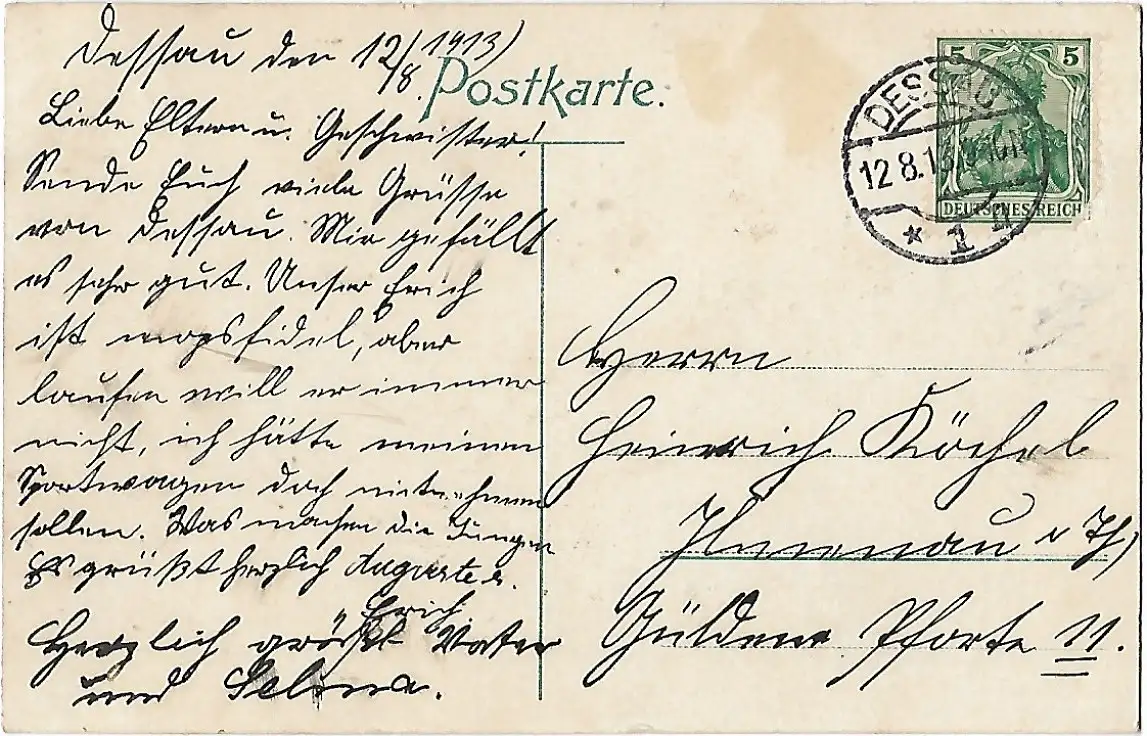 Dessau den 12/8. 1913)
Postkarte.
Liebe Eltern u. Geschwister!
Sende Euch viele Grüsse
von Dessau. Mir gefällt
es sehr gut. Unser Erich
ist mopsfidel, aber
laufen will er immer
nicht, ich hätte meinen
Sportwagen doch mitnehmen
sollen. Was machen die Jungen
Es grüßt herzlich Auguste u.
Erich.
Herzlich grüßt Vater
und Selma.
5 5
DEUTSCHES REICH
DESSAU
12 8.13
* 1
Herrn
Heinrich Köchel
Ilmenau i Th)
Güldene Pforte 11.